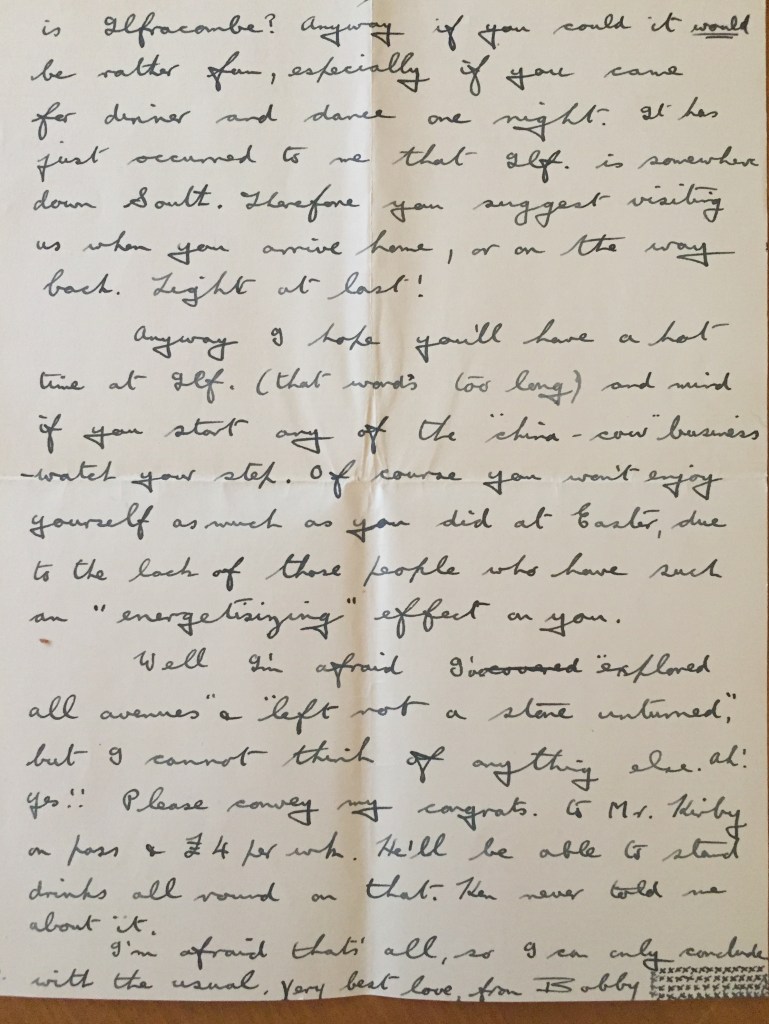 is Ilfracombe? Anyway if you could it would
be rather fun, especially if you came
for dinner and dance one night. It has
just occurred to me that Ilf. is somewhere
down South. Therefore you suggest visiting
us when you arrive home, or on the way
back. Light at last!
Anyway I hope you'll have a hot
time at Ilf. (that word's too long) and mind
if you start any of the "china - cow" business
-watch your step. Of course you won't enjoy
yourself as much as you did at Easter, due
to the lack of those people who have such
an "energetisizing" effect on you.
Well I'm afraid I've covered "explored
all avenues" & "left not a stone unturned",
but I cannot think of anything else. Ah!
Yes!! Please convey my congrats. to Mr. Kirby
on pass & £4 per wk. He'll be able to stand
drinks all round on that. Ken never told me
about it.
I'm afraid thats' all, so I can only conclude
with the usual, Very best love, from Bobby xxxxxxxxxxxx